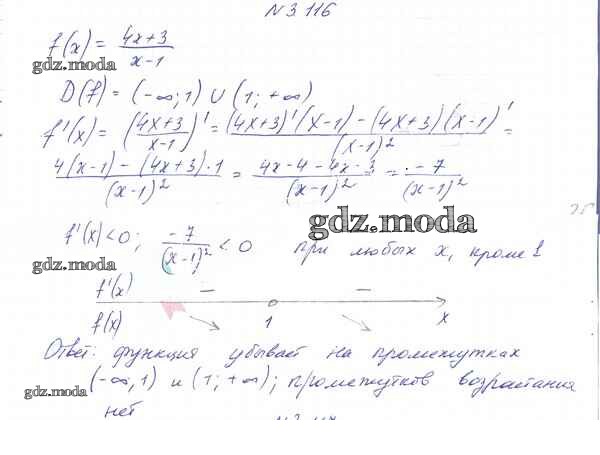 N 3 116
f(x) = (4x+3)/(x-1)
gdz.moda
D(f) = (-∞; 1) ∪ (1; +∞)
f'(x) = ((4x+3)/(x-1))' = ((4x+3)'(x-1) - (4x+3)(x-1)')/(x-1)² =
gdz.moda
(4(x-1) - (4x+3)·1)/(x-1)² = (4x-4-4x-3)/(x-1)² = -7/(x-1)²
gdz.moda
f'(x)<0; -7/(x-1)² < 0 при любых x, кроме 1
gdz.moda
f'(x) - -
f(x) 1 x
Ответ: функция убывает на промежутках
gdz.moda (-∞, 1) и (1; +∞); промежутков возрастания
нет